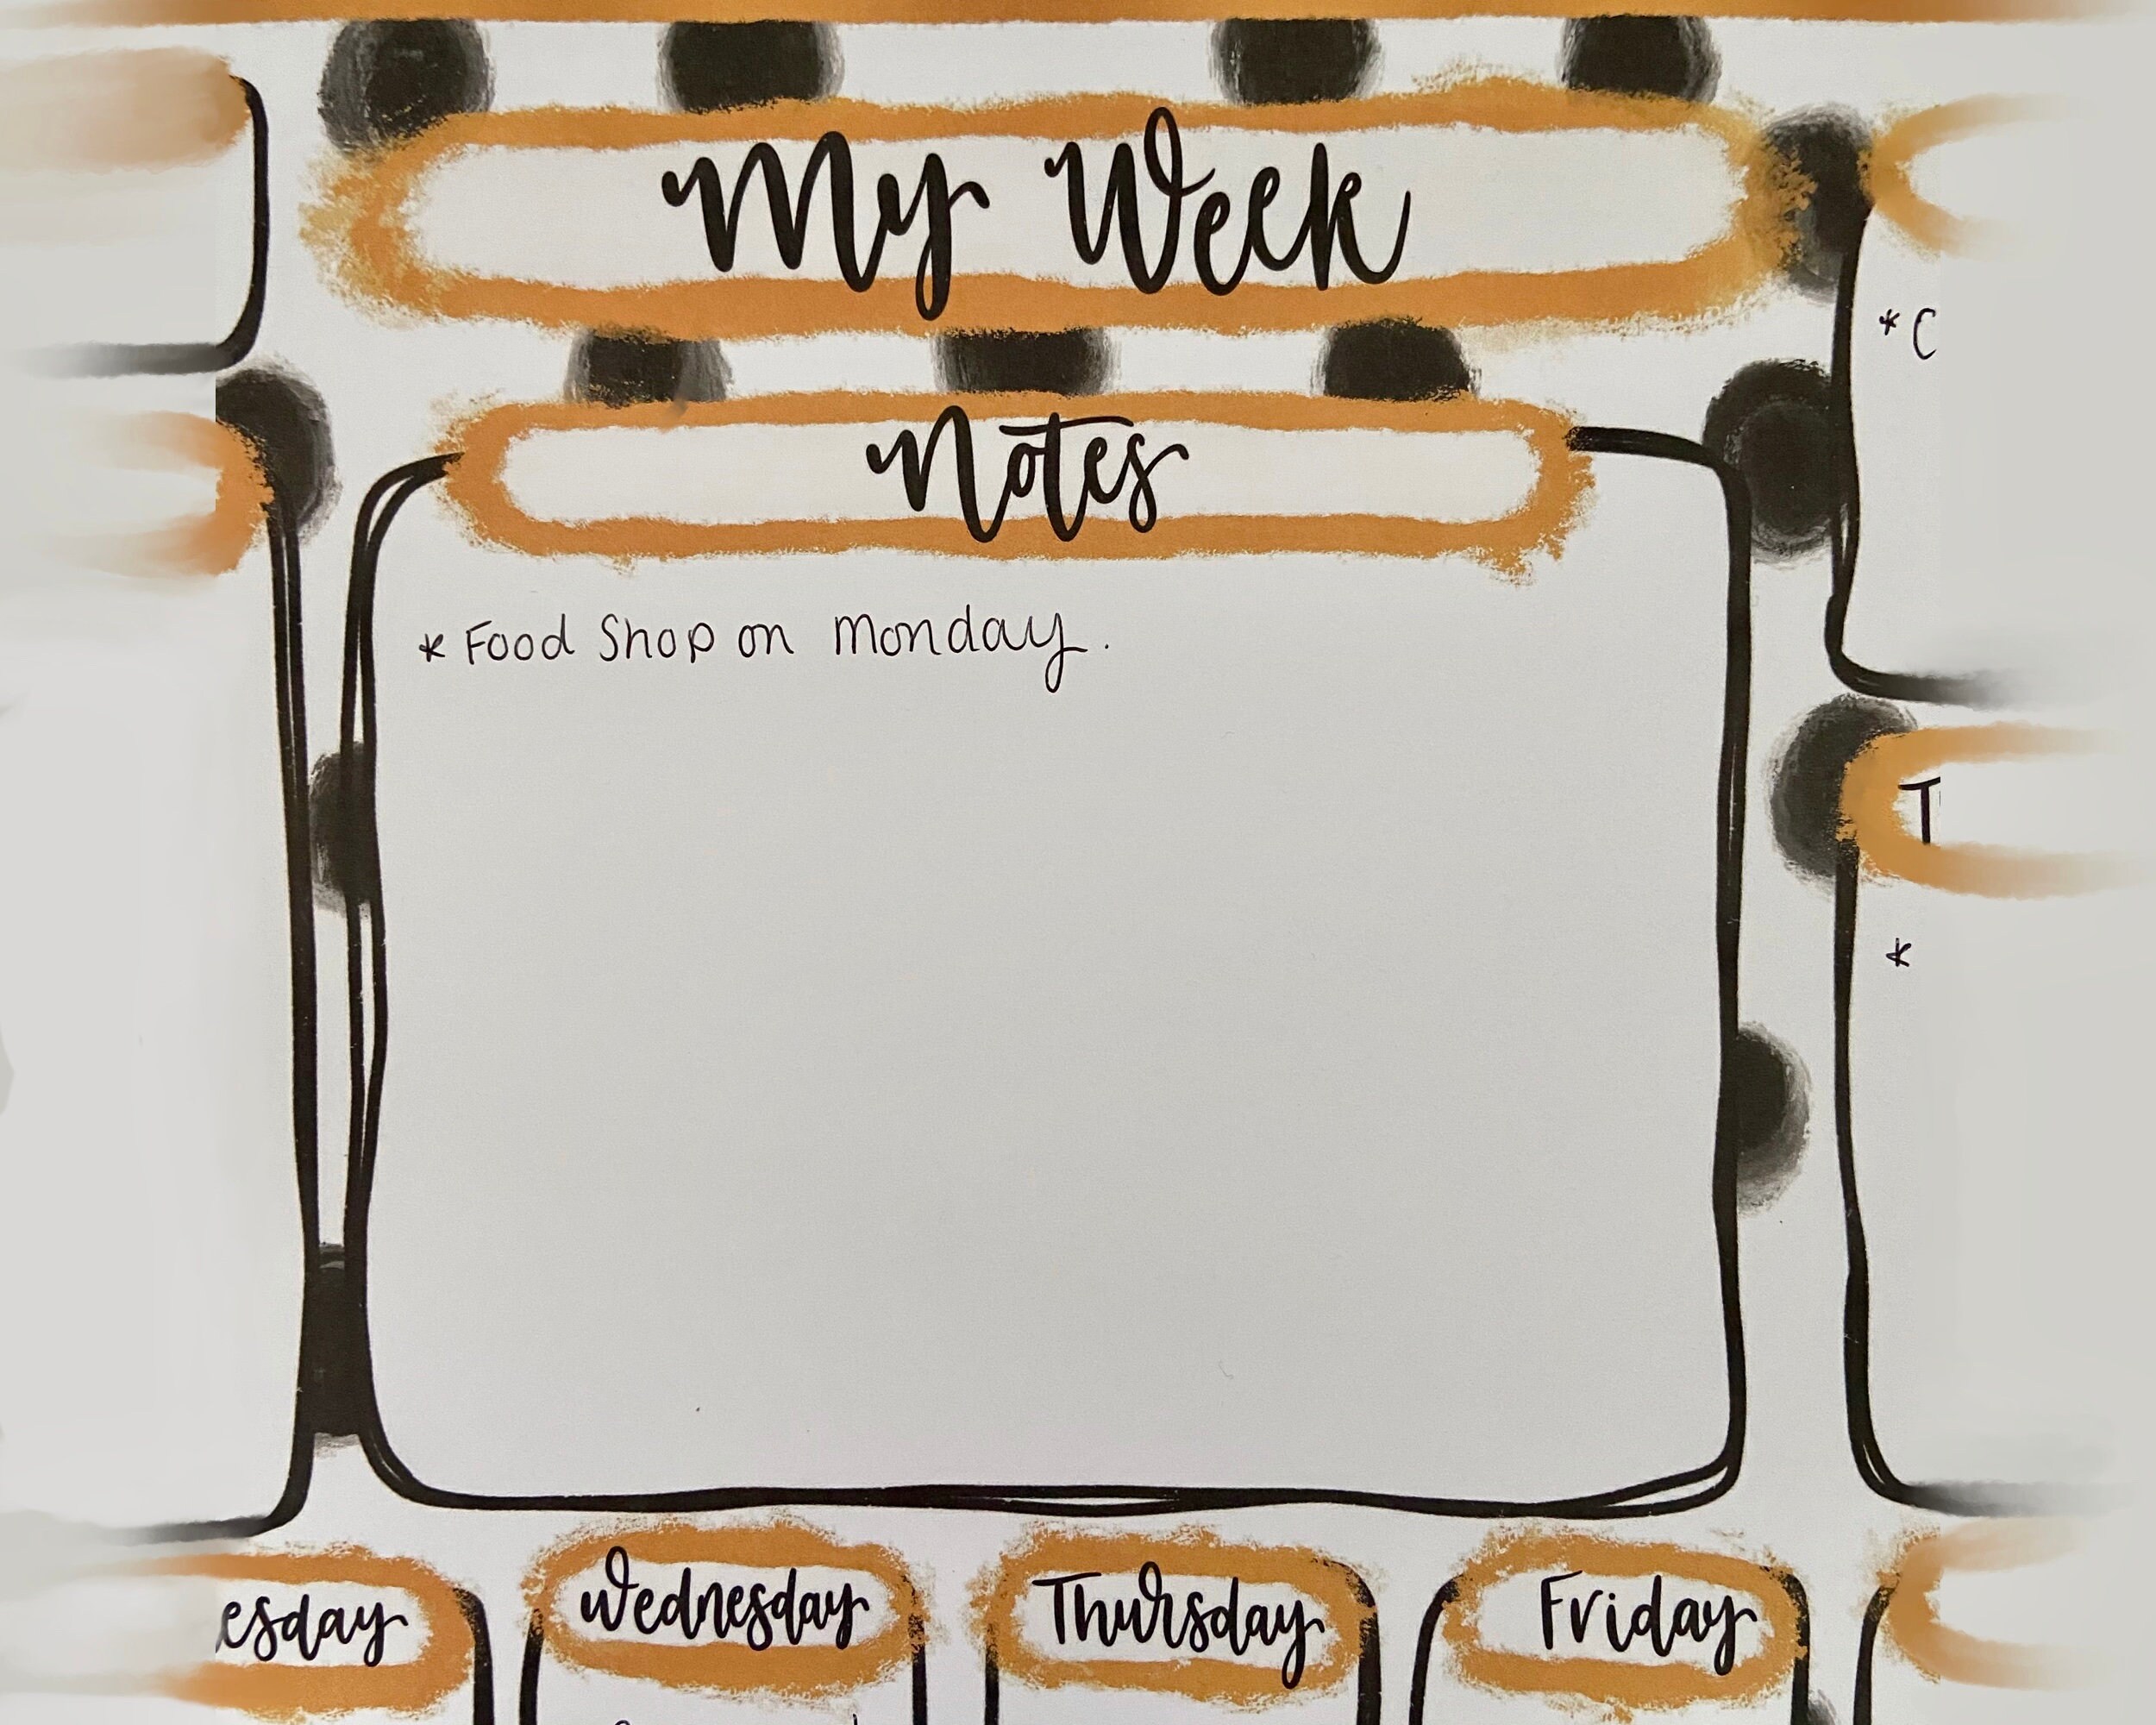 My Week
Notes
* Food Shop on Monday.
* C
T
*
esday
Wednesday
Thursday
Friday